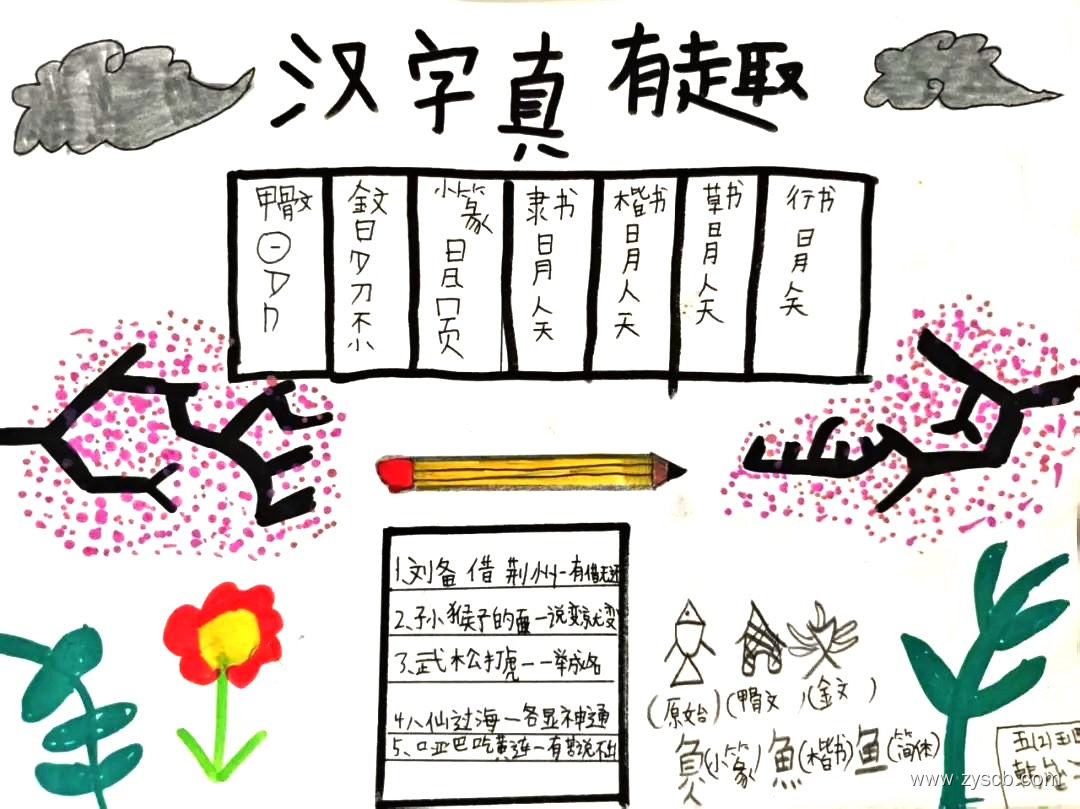 汉字真有趣
甲骨文
金文
日
刀
不
小
小篆
日
页
隶书
日
月
人
天
楷书
日
月
人
天
草书
日
月
人
天
行书
日
月
人
天
1.刘备借荆州一有借无还
2.子小猴子的面一说变就变
3.武松打虎一一举成名
4.八仙过海一各显神通
5.口亚巴吃黄连一有苦说不出
(原始)(鸭文)(金文)
(小篆)魚(楷书)鱼(简体)
五(2)班
www.zyscb.com